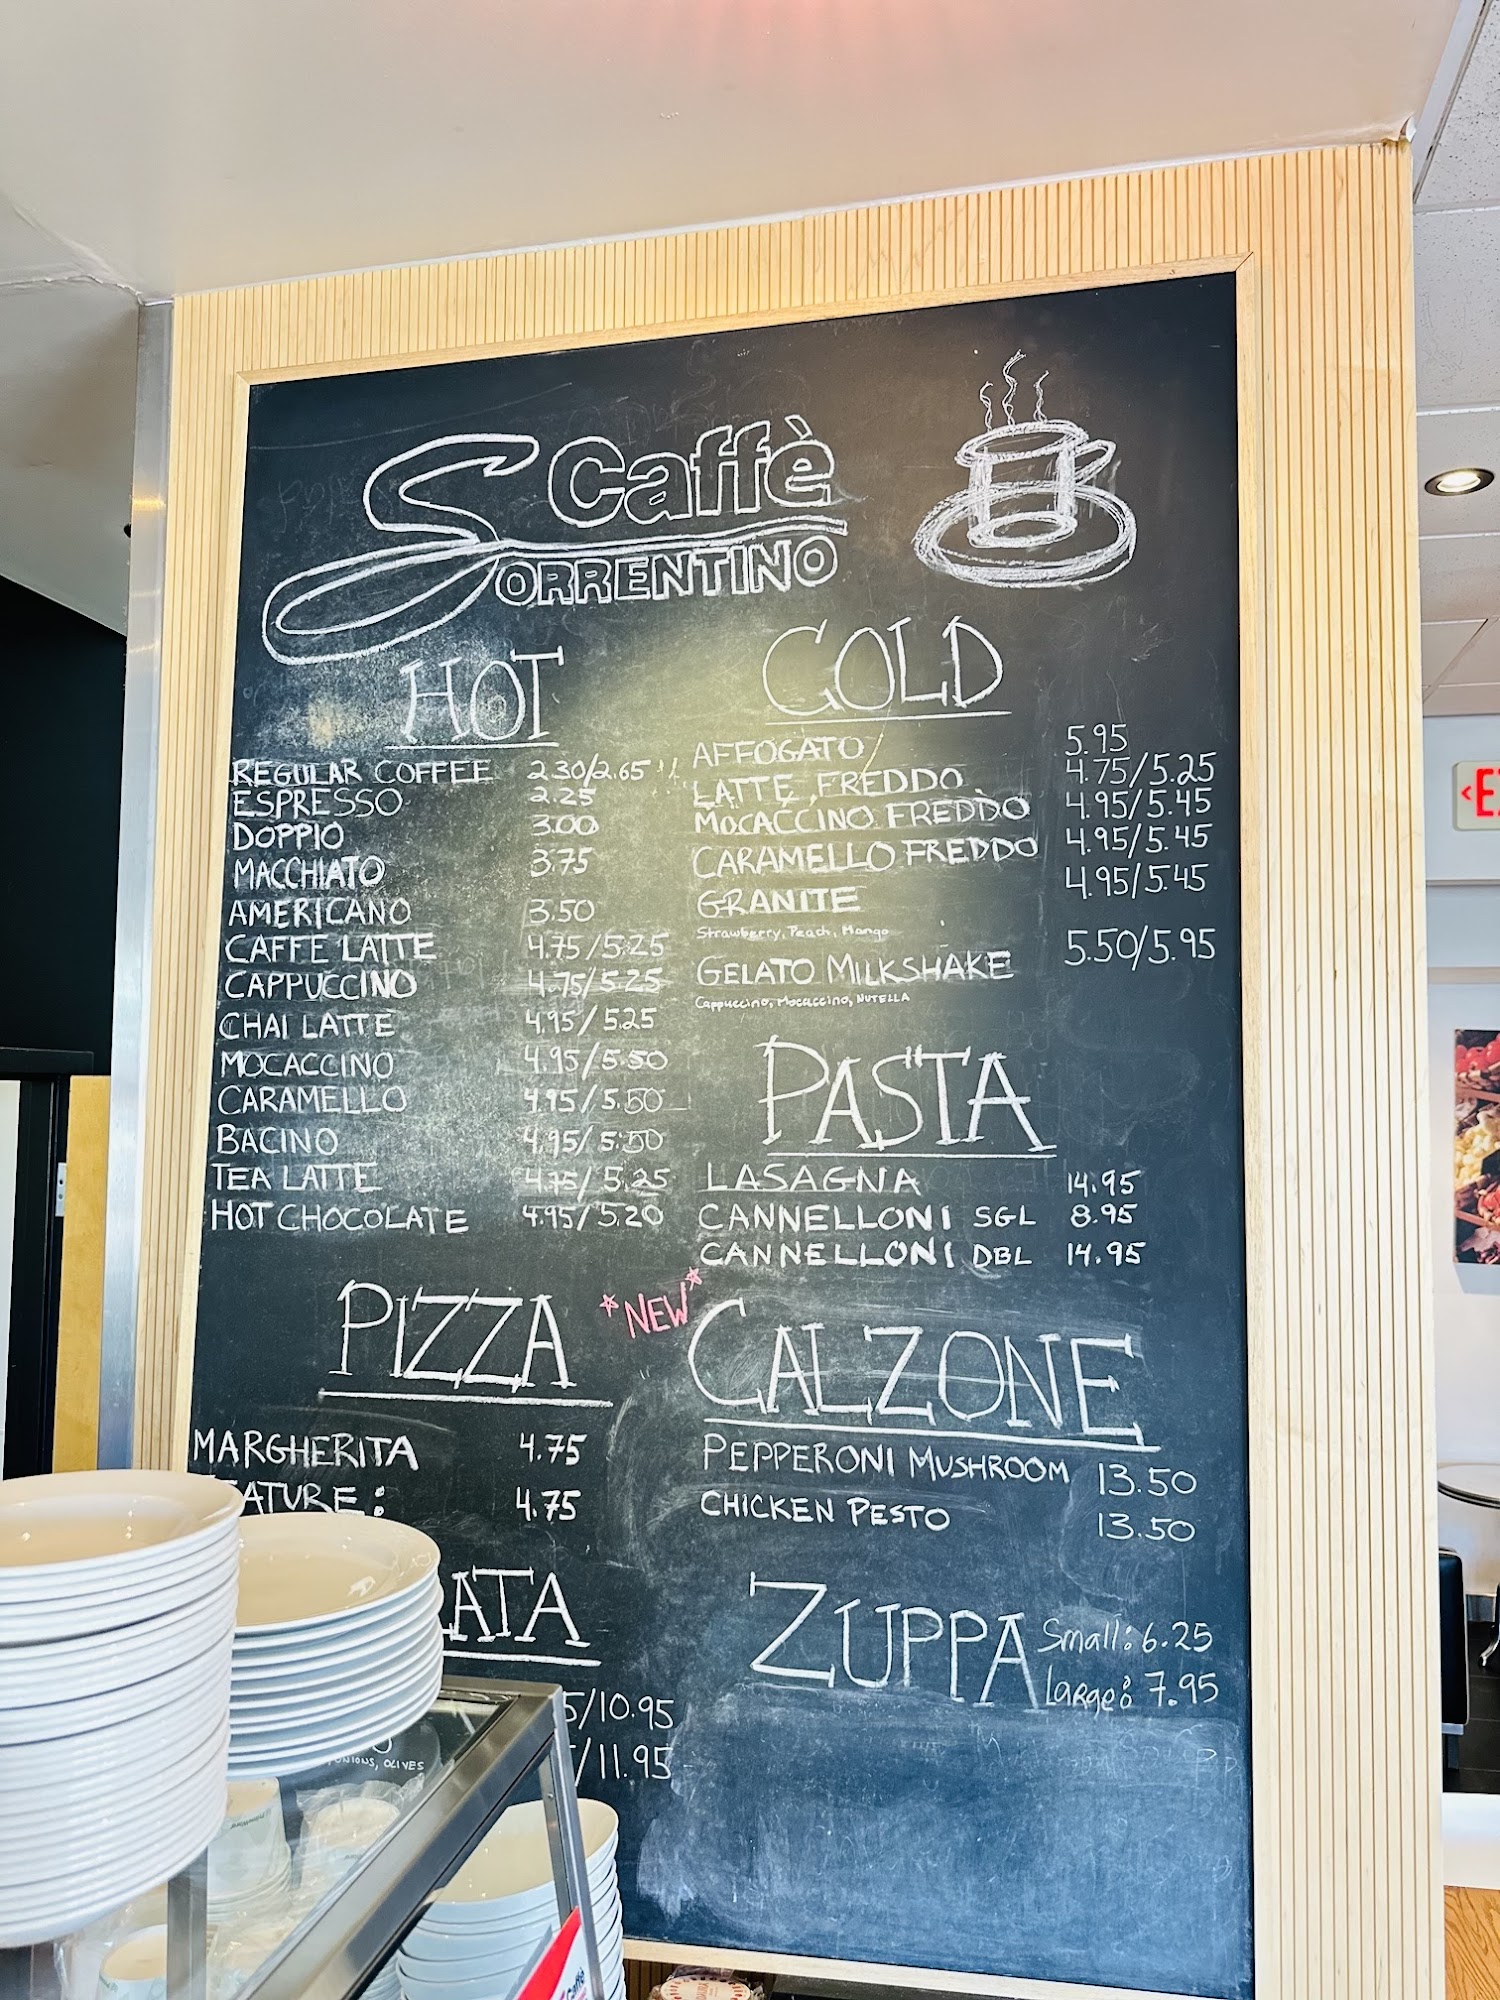 Caffè
SORRENTINO
HOT
REGULAR COFFEE 2.30/2.65
ESPRESSO 2.25
DOPPIO 3.00
MACCHIATO 3.75
AMERICANO 3.50
CAFFE LATTE 4.75/5.25
CAPPUCCINO 4.75/5.25
CHAI LATTE 4.95/5.25
MOCACCINO 4.95/5.50
CARAMELLO 4.95/5.50
BACINO 4.95/5.50
TEA LATTE 4.75/5.25
HOT CHOCOLATE 4.95/5.20
COLD
AFFOGATO 5.95
LATTE FREDDO 4.75/5.25
MOCACCINO FREDDO 4.95/5.45
CARAMELLO FREDDO 4.95/5.45
GRANITE 4.95/5.45
Strawberry, Peach, Mango
GELATO MILKSHAKE 5.50/5.95
Cappuccino, Mocaccino, NUTELLA
PASTA
LASAGNA 14.95
CANNELLONI SGL 8.95
CANNELLONI DBL 14.95
PIZZA
MARGHERITA 4.75
EATURE: 4.75
*NEW*
CALZONE
PEPPERONI MUSHROOM 13.50
CHICKEN PESTO 13.50
LATA
5/10.95
/11.95
ONIONS, OLIVES
ZUPPA
Small: 6.25
Large: 7.95
<EX
Caffè